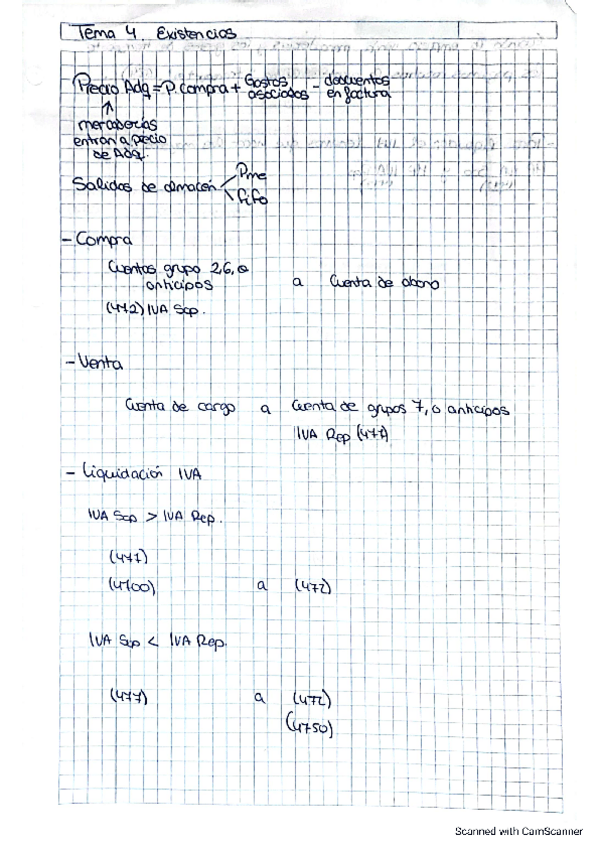 Tema 4. Existencias
Precio Adq = P. compra + Gastos asociados - descuentos en factura
↑
mercaderías
entran a precio
de Adq.
Salidas de almacén < Pme
Fifo
- Compra
Cuentas grupo 2,6, o
anticipos a Cuenta de abono
(472) IVA Sop.
- Venta
Cuenta de cargo a Cuenta de grupos 7, o anticipos
IVA Rep (477)
- Liquidación IVA
IVA Sop > IVA Rep.
(477)
(4700) a (472)
IVA Sop < IVA Rep.
(477) a (472)
(4750)
Scanned with CamScanner